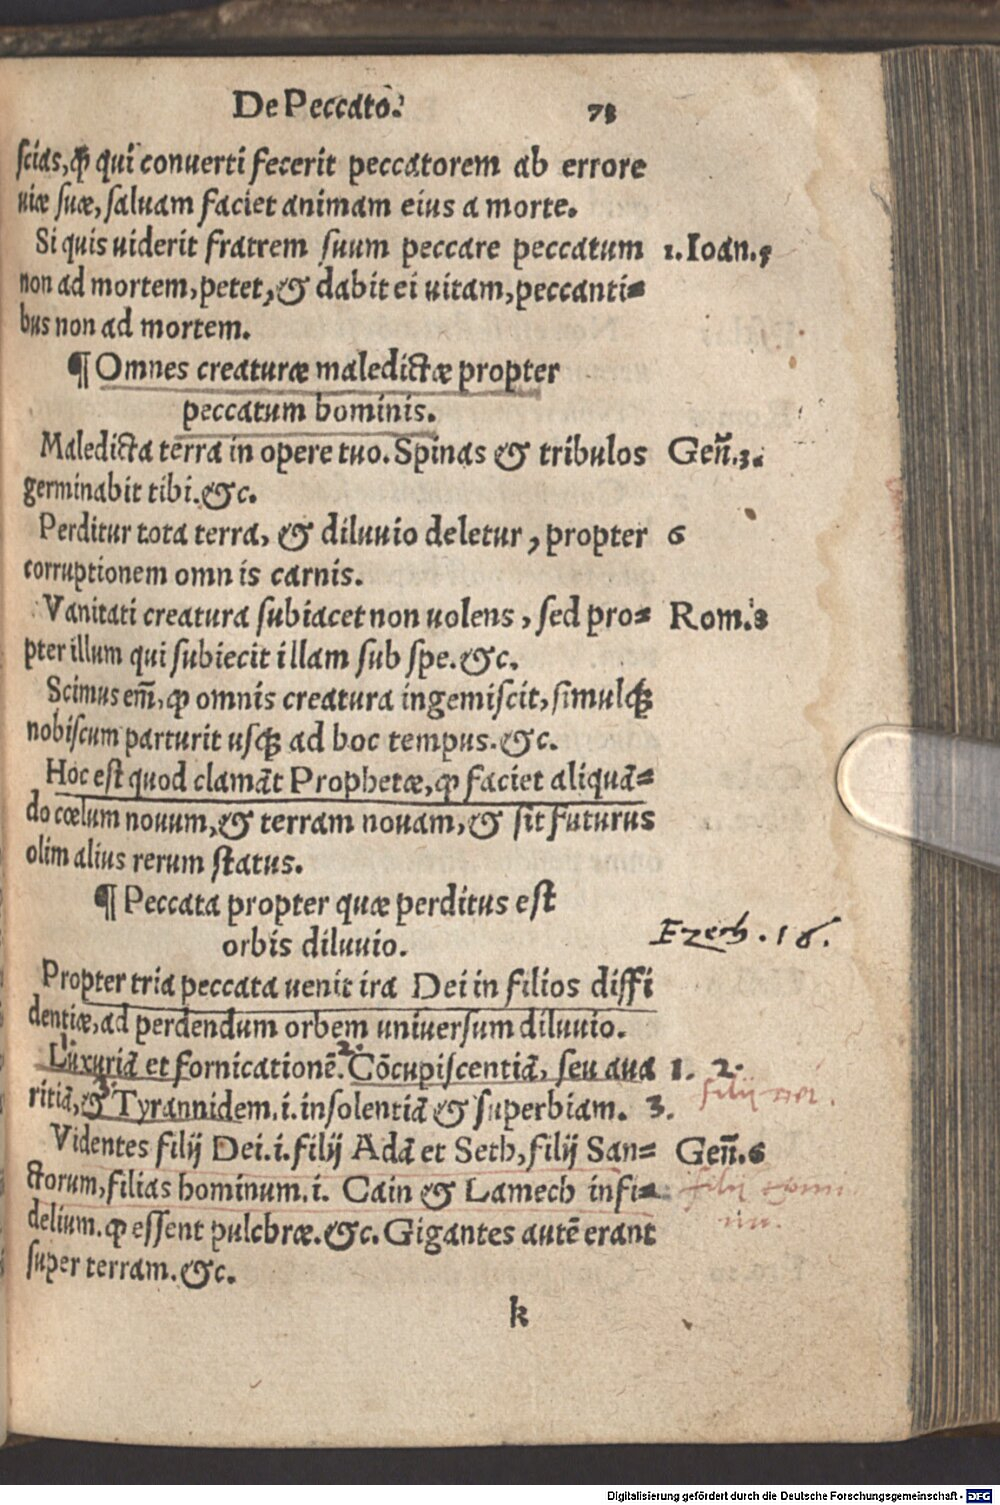 De Peccato. 73
scias, ꝙ qui conuerti fecerit peccatorem ab errore
uiæ suæ, saluam faciet animam eius a morte.
Si quis uiderit fratrem suum peccare peccatum 1. Ioan. 5
non ad mortem, petet, & dabit ei uitam, peccanti=
bus non ad mortem.
¶ Omnes creaturæ maledictæ propter
peccatum hominis.
Maledicta terra in opere tuo. Spinas & tribulos Geñ. 3.
germinabit tibi. &c.
Perditur tota terra, & diluuio deletur, propter 6
corruptionem omnis carnis.
Vanitati creatura subiacet non uolens, sed pro= Rom. 8
pter illum qui subiecit illam sub spe. &c.
Scimus em̃, ꝙ omnis creatura ingemiscit, simulqꝫ
nobiscum parturit usqꝫ ad hoc tempus. &c.
Hoc est quod clamãt Prophetæ, ꝙ faciet aliquã=
do cœlum nouum, & terram nouam, & sit futurus
olim alius rerum status.
¶ Peccata propter quæ perditus est
orbis diluuio.
Ezech. 16.
Propter tria peccata uenit ira Dei in filios diffi
dentiæ, ad perdendum orbem uniuersum diluuio.
1. Luxuriã et fornicationẽ. 2. Cõcupiscentiã, seu aua 1. 2.
ritiã, & 3. Tyrannidem. i. insolentiã & superbiam. 3.
filij dei.
Videntes filij Dei. i. filij Adã et Seth, filij San= Geñ. 6
ctorum, filias hominum. i. Cain & Lamech infi=
filij
delium. ꝙ essent pulchræ. &c. Gigantes autẽ erant
super terram. &c.
k
Digitalisierung gefördert durch die Deutsche Forschungsgemeinschaft - DFG